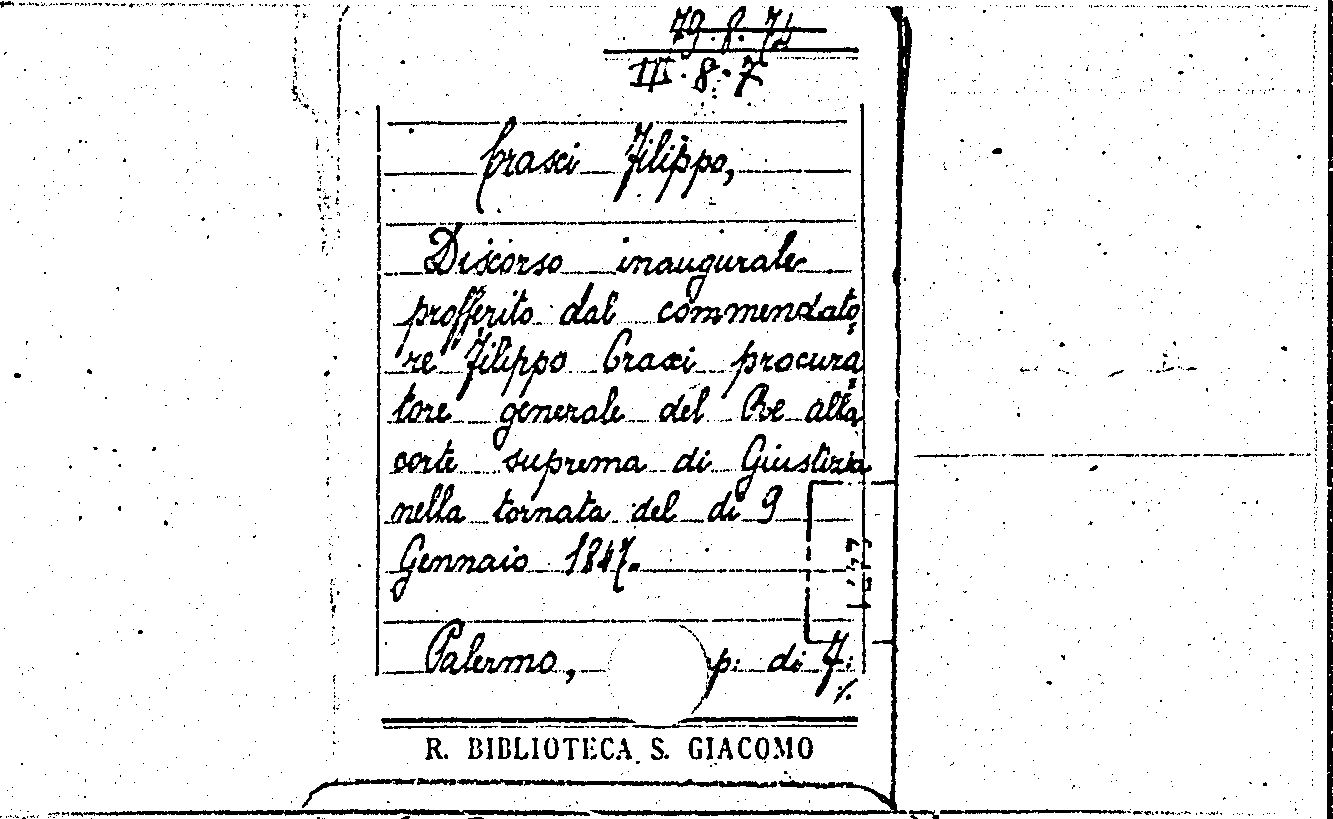 III.8.7
Craxi Filippo,
Discorso inaugurale
profferito dal commendato=
re Filippo Craxi procura=
tore generale del Re alla
corte suprema di Giustizia
nella tornata del di 9
Gennaio 1847.
Palermo, p: di F:
R. BIBLIOTECA S. GIACOMO